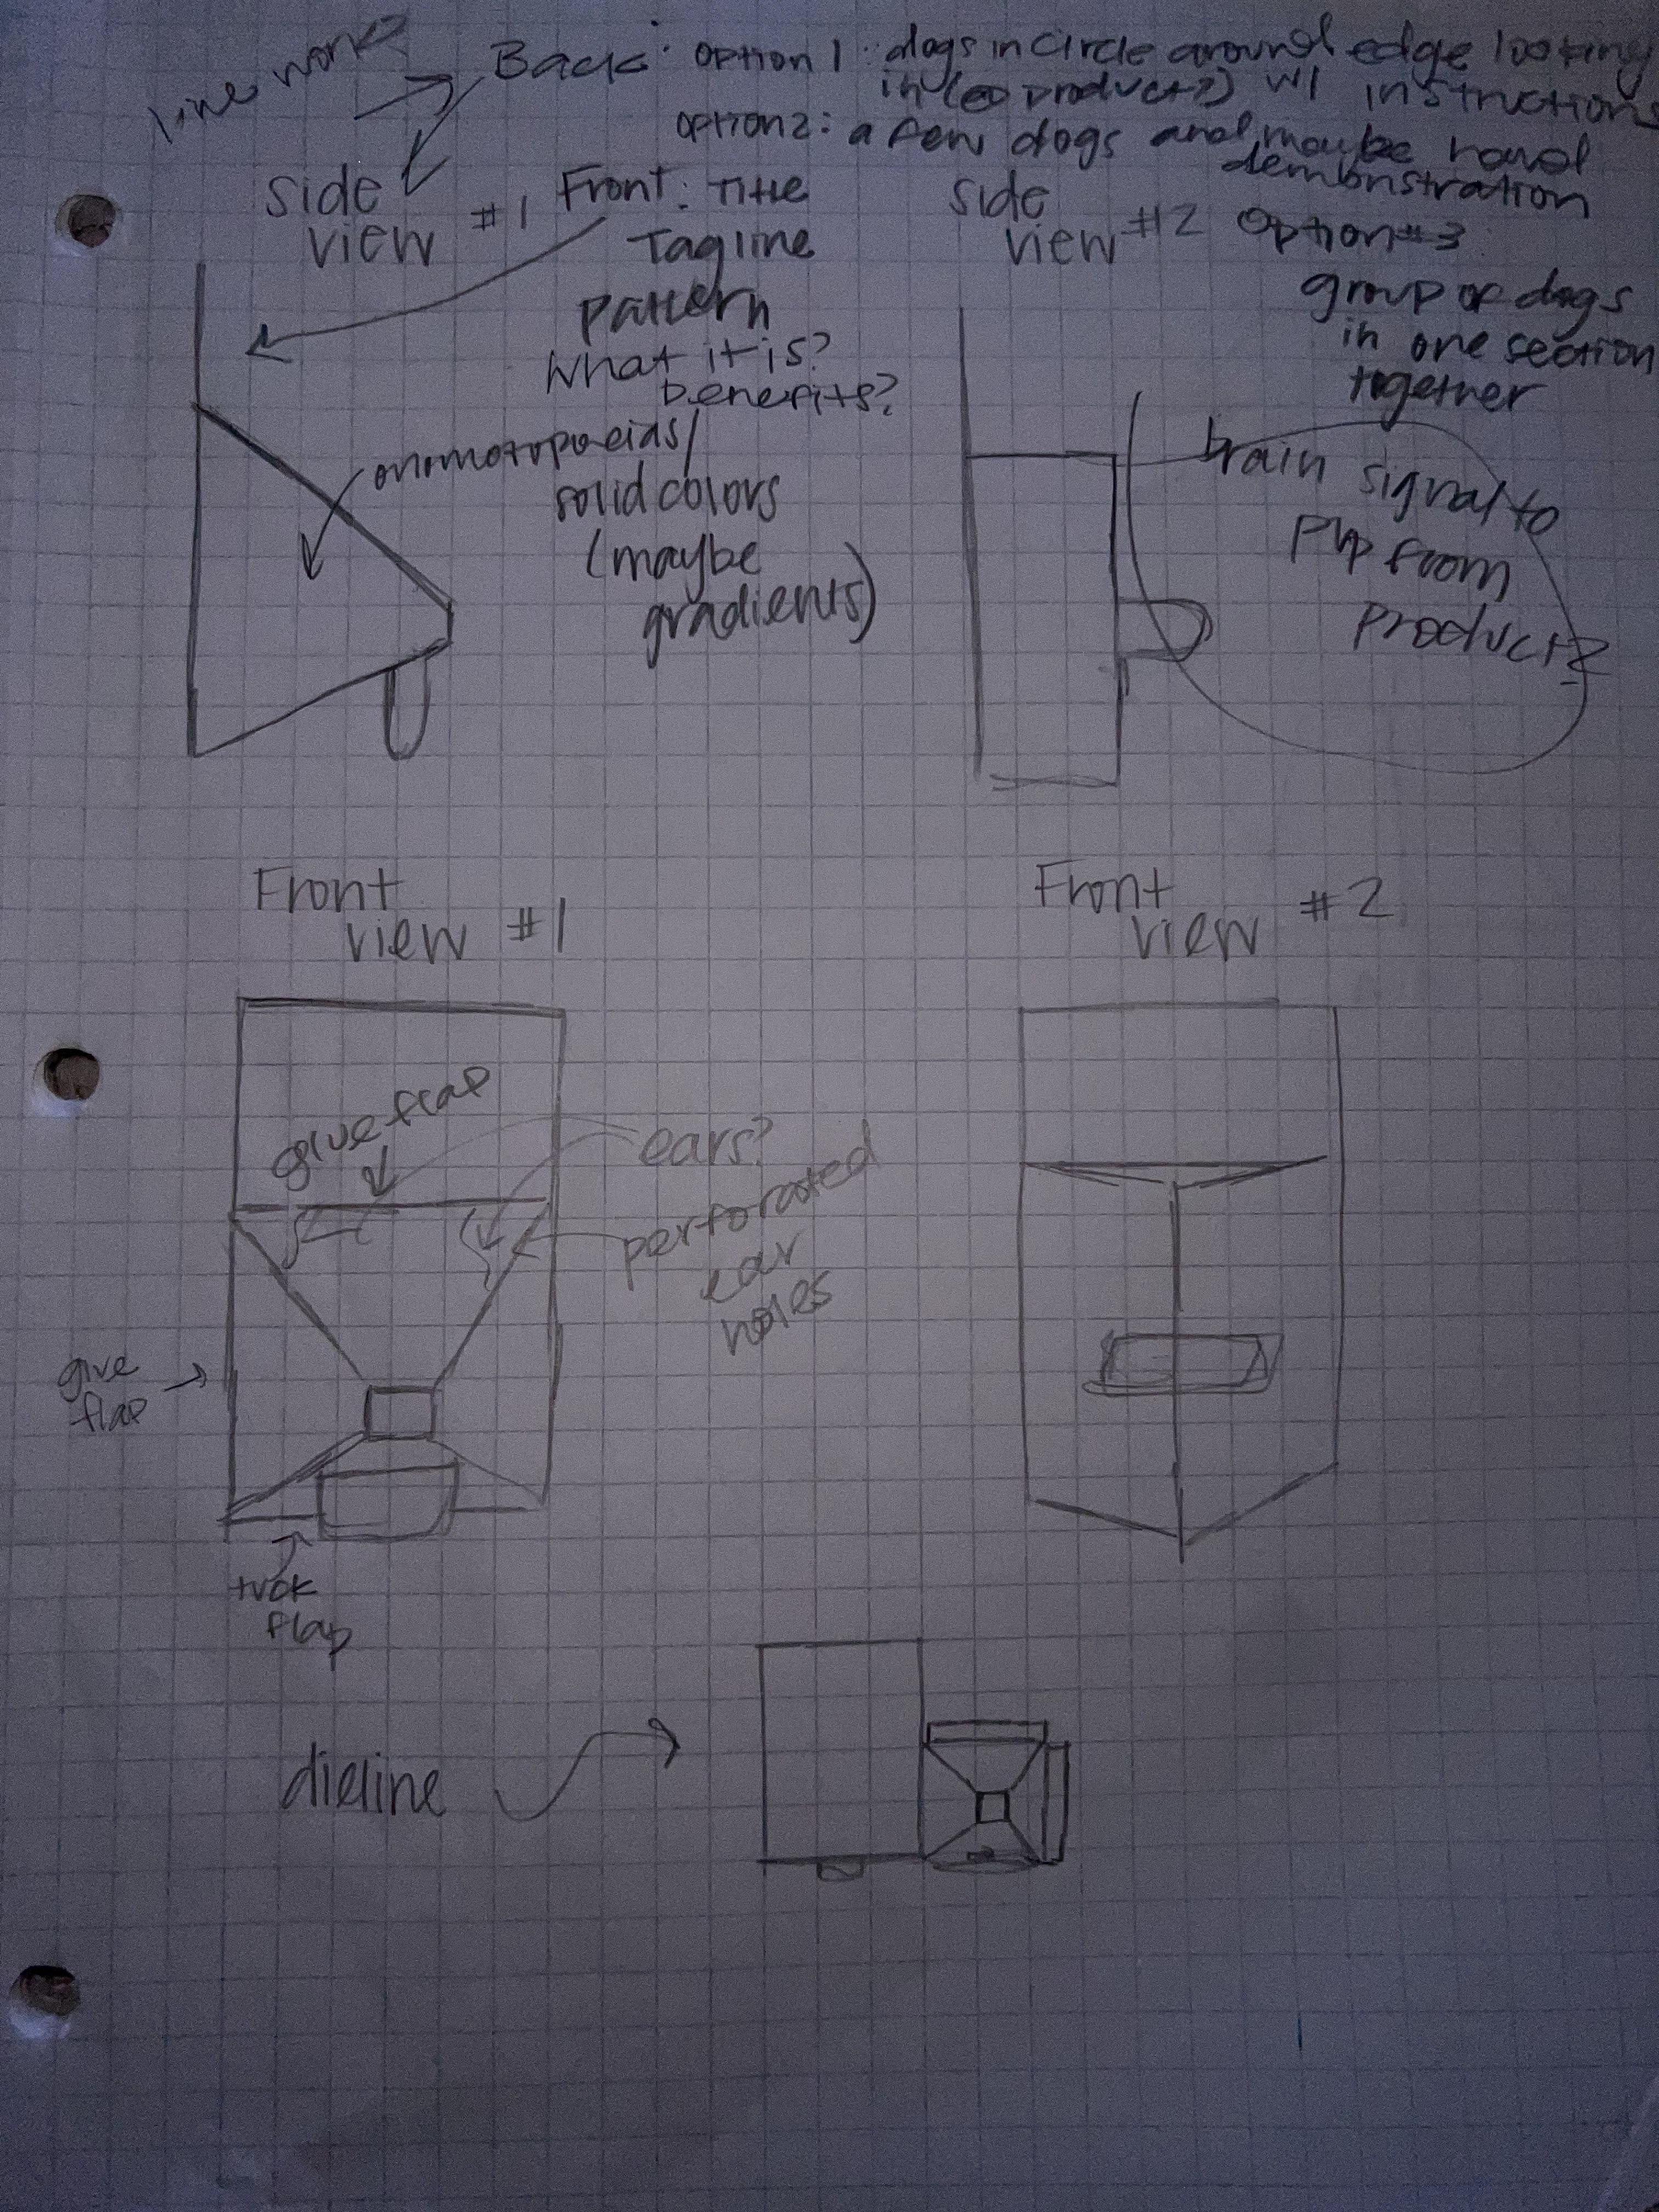 line work
Back: option 1: dogs in circle around edge looking
in (@ product?) w/ instructions
option 2: a few dogs and maybe hand
demonstration
side
view #1
Front: Title
Tagline
pattern
What it is?
benefits?
side
view #2
Option #3
group of dogs
in one section
together
onomotopoeias/
solid colors
(maybe
gradients)
brain signal to
pup from
product?
Front
view #1
Front
view #2
glue flap
ears?
perforated
ear
holes
glue
flap
tuck
flap
dieline